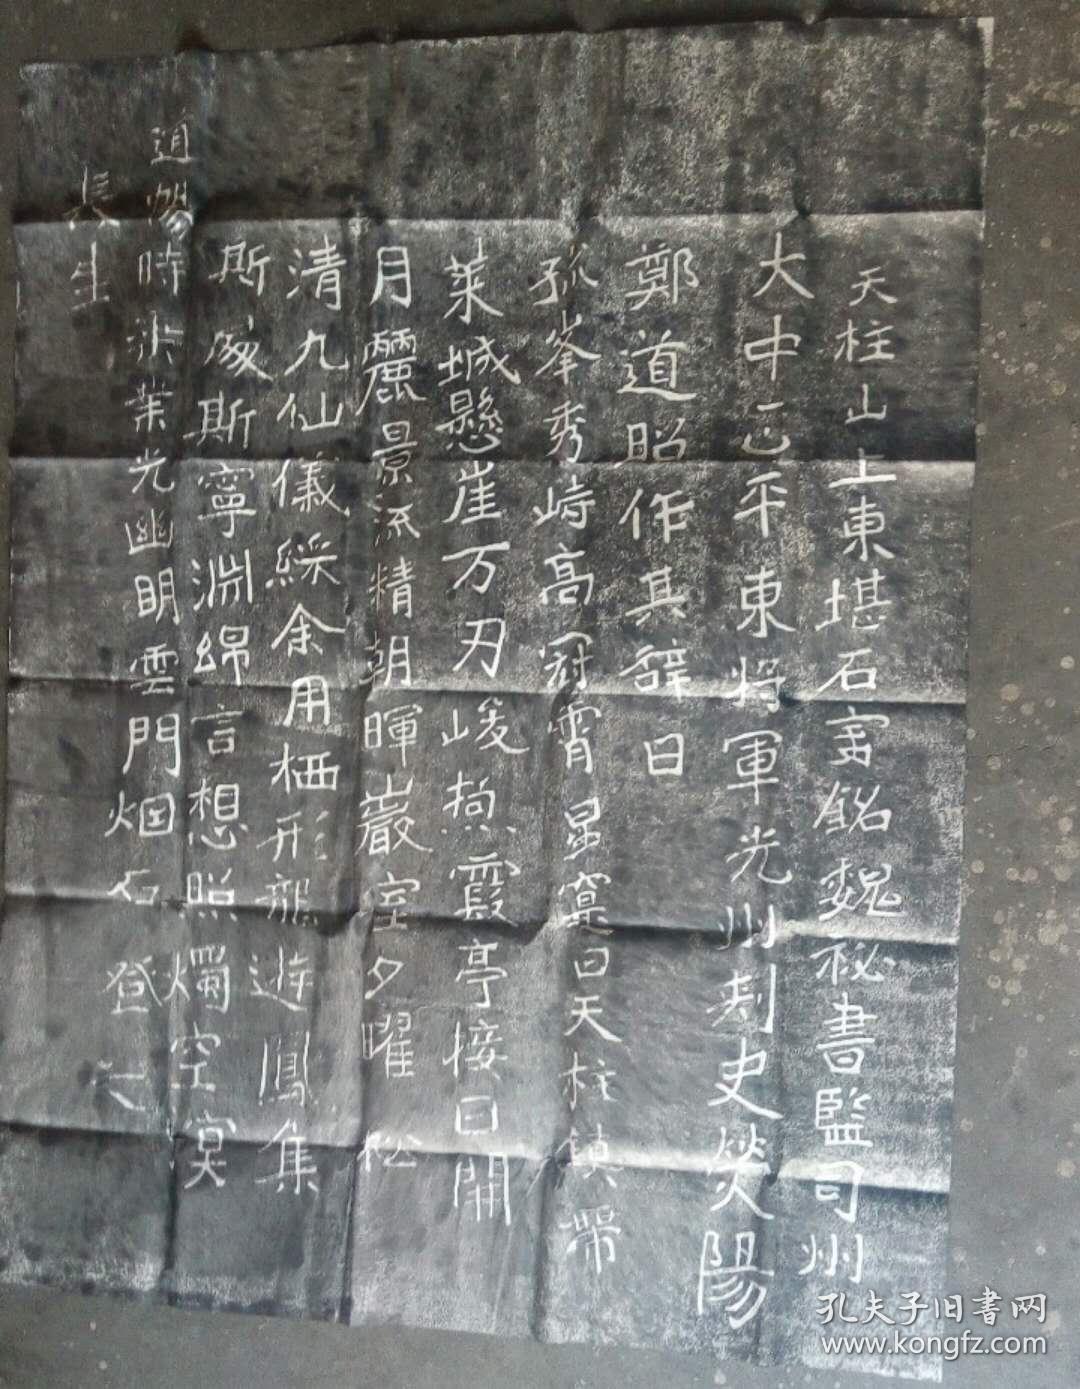 天柱山上東堪石室銘魏秘書監司州
大中正平東將軍光州刺史熒陽
鄭道昭作其辞曰
孤峯秀峙高冠霄星寔曰天柱鎮帶
萊城懸崖万刃峻極霞亭接日開
月麗景流精朝暉巖室夕曜松
清九仙儀綵余用栖形龍遊鳳集
斯處斯寧淵綿言想照燭空溟
道暢時 業光幽明雲門烟石登之
長生
孔夫子旧書网
www.kongfz.com